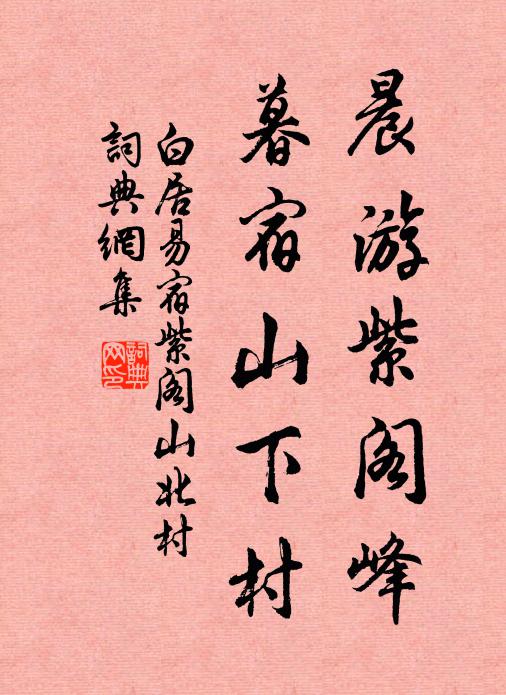 晨游紫阁峰
暮宿山下村
白居易宿紫阁山北村
詞典網集
詞典网印